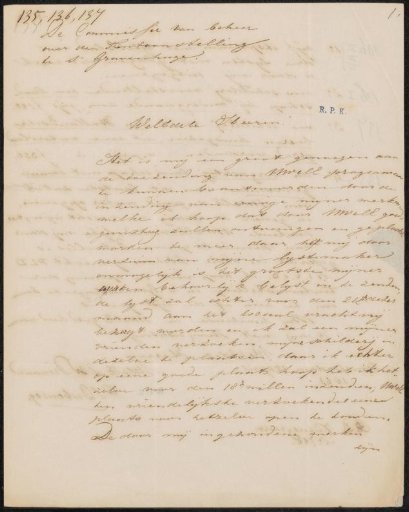 135, 136, 137
1.
De Commissie van beheer
over de Tentoonstelling
te s' Gravenhage.
R.P.K.
WelEdele Heeren
Het is mij een groot genoegen aan
de toezending van UWelE programma
te kunnen beantwoorden door de
inzending van mijner werken
welke ik hoop dat door UWelE
gunstig zullen ontvangen en geplaatst
worden te meer, daar het mij door
verzuim van mijne Lystmaker
onmogelijk is het grootste mijner
werken behoorlijk gelyst in te zenden
de lyst zal echter voor den
aan het lokaal vrachtvrij
bezorgt worden en ik zal een mijner
vrienden verzoeken mijn schilderij in
dezelve te plaatsen daar ik echter
op eene goede plaats hoop heb ik het
voor den 10 willen inzenden, UWelE
ten vriendelijkste verzoekende eene
plaats voor hetzelve open te houden.
De door mij ingezondene werken
zijn